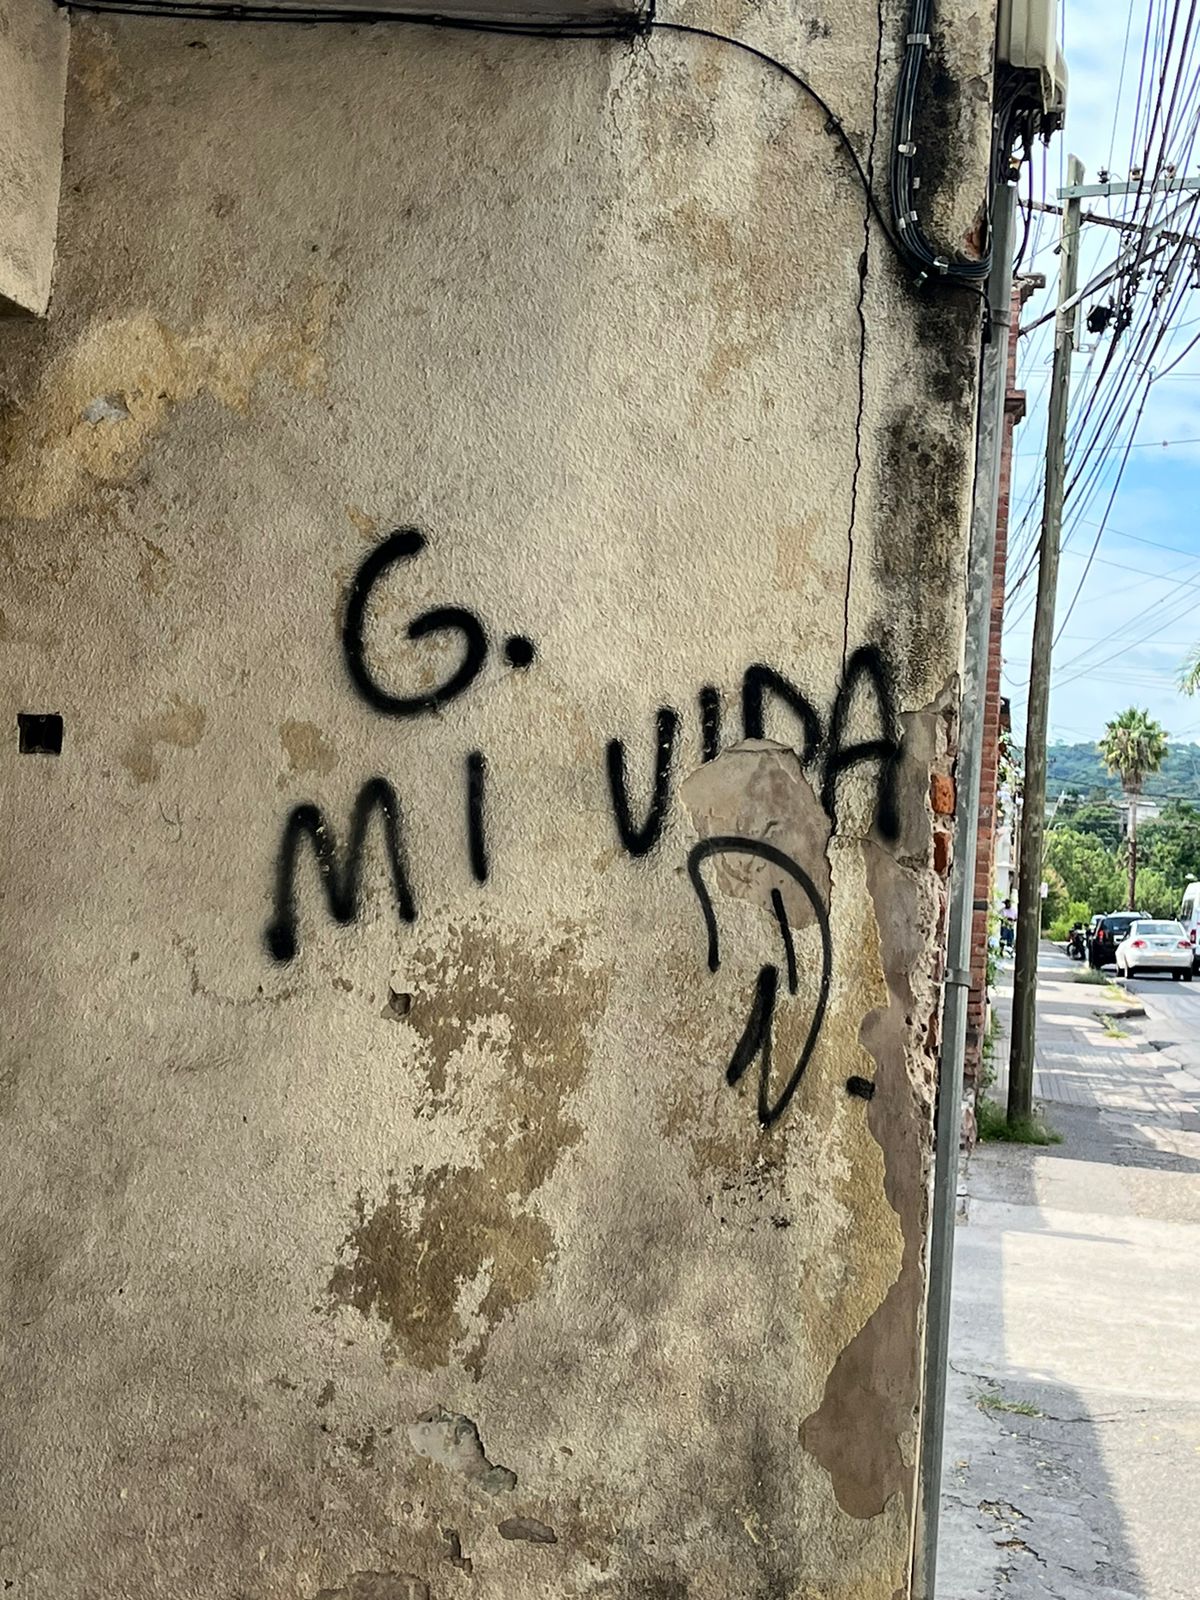 G.
MI VIDA
D.